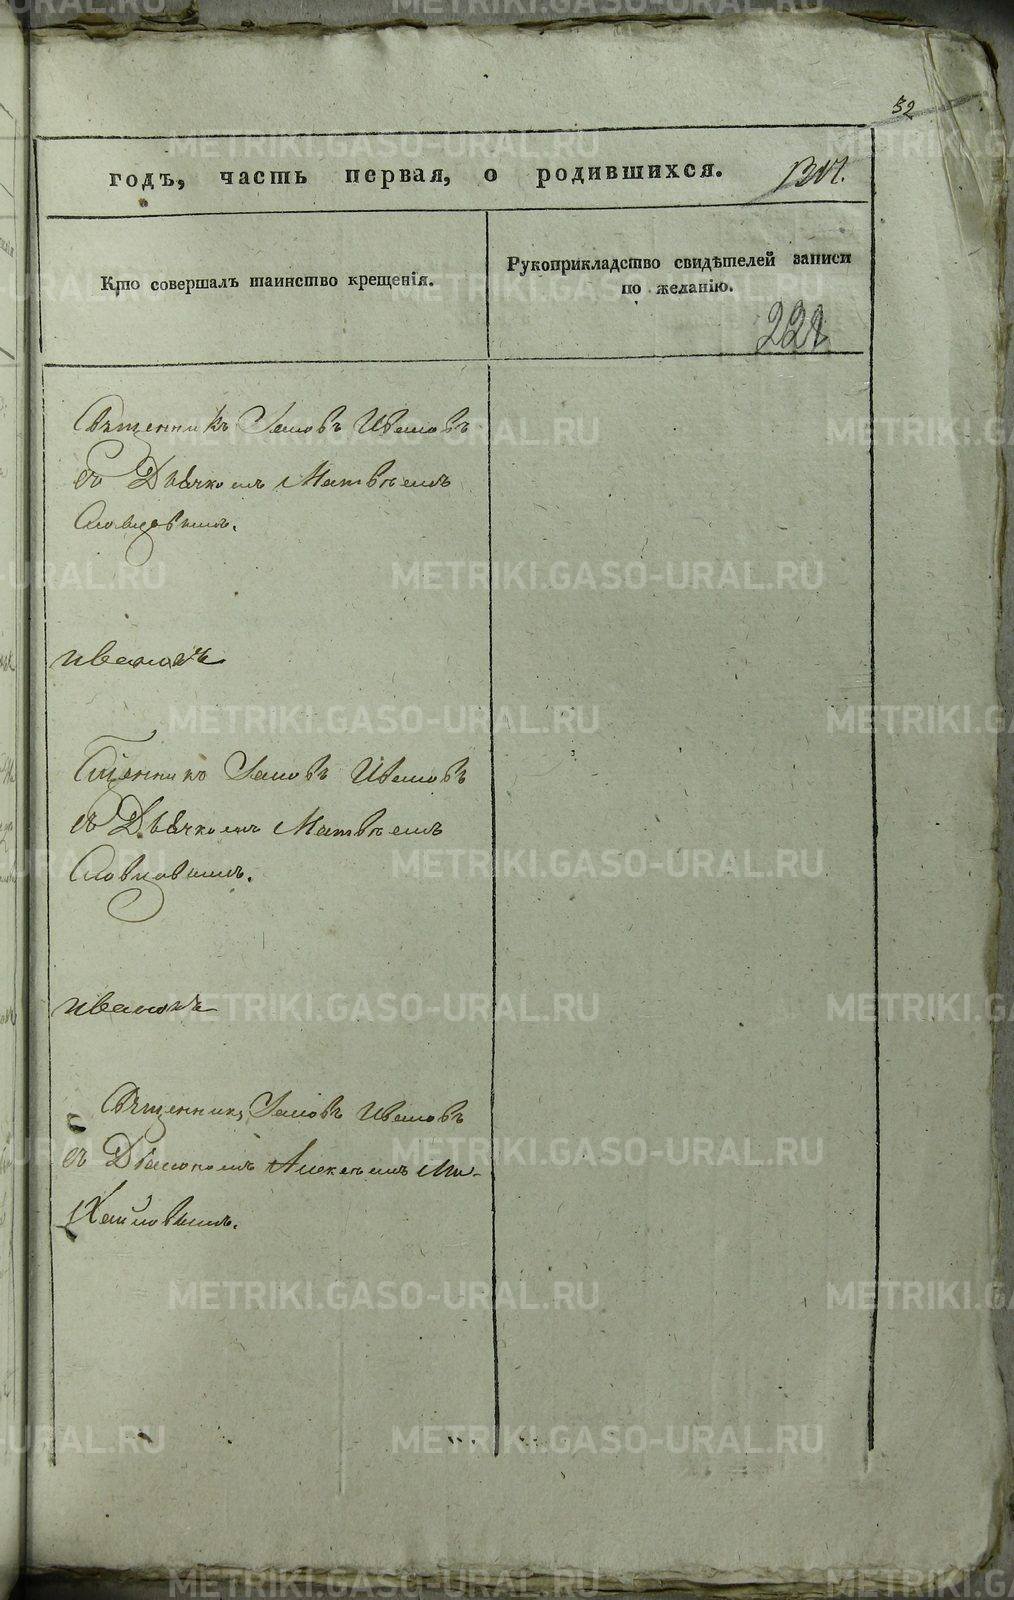 32
годъ, часть первая, о родившихся.
Кто совершалъ таинство крещенія.
Рукоприкладство свидѣтелей записи
по желанію.
221
Священникъ Іаковъ Ивановъ
съ Дьячкомъ Матвѣемъ
Словцовымъ.
Ивановъ
Сщенникъ Іаковъ Ивановъ
съ Дьячкомъ Матвѣемъ
Словцовымъ.
Священникъ Іаковъ Ивановъ
съ Діакономъ Алексѣемъ Ми-
хайловымъ.
METRIKI.GASO-URAL.RU